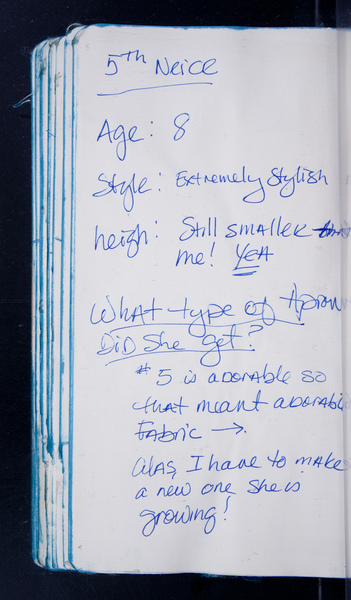 5th Neice
Age: 8
Style: Extremely Stylish
heigh: Still smaller than
me! YEA
What type of Apron
Did She get?
#5 is adorable so
that meant adorable
Fabric →
Alas, I have to make
a new one she is
growing!